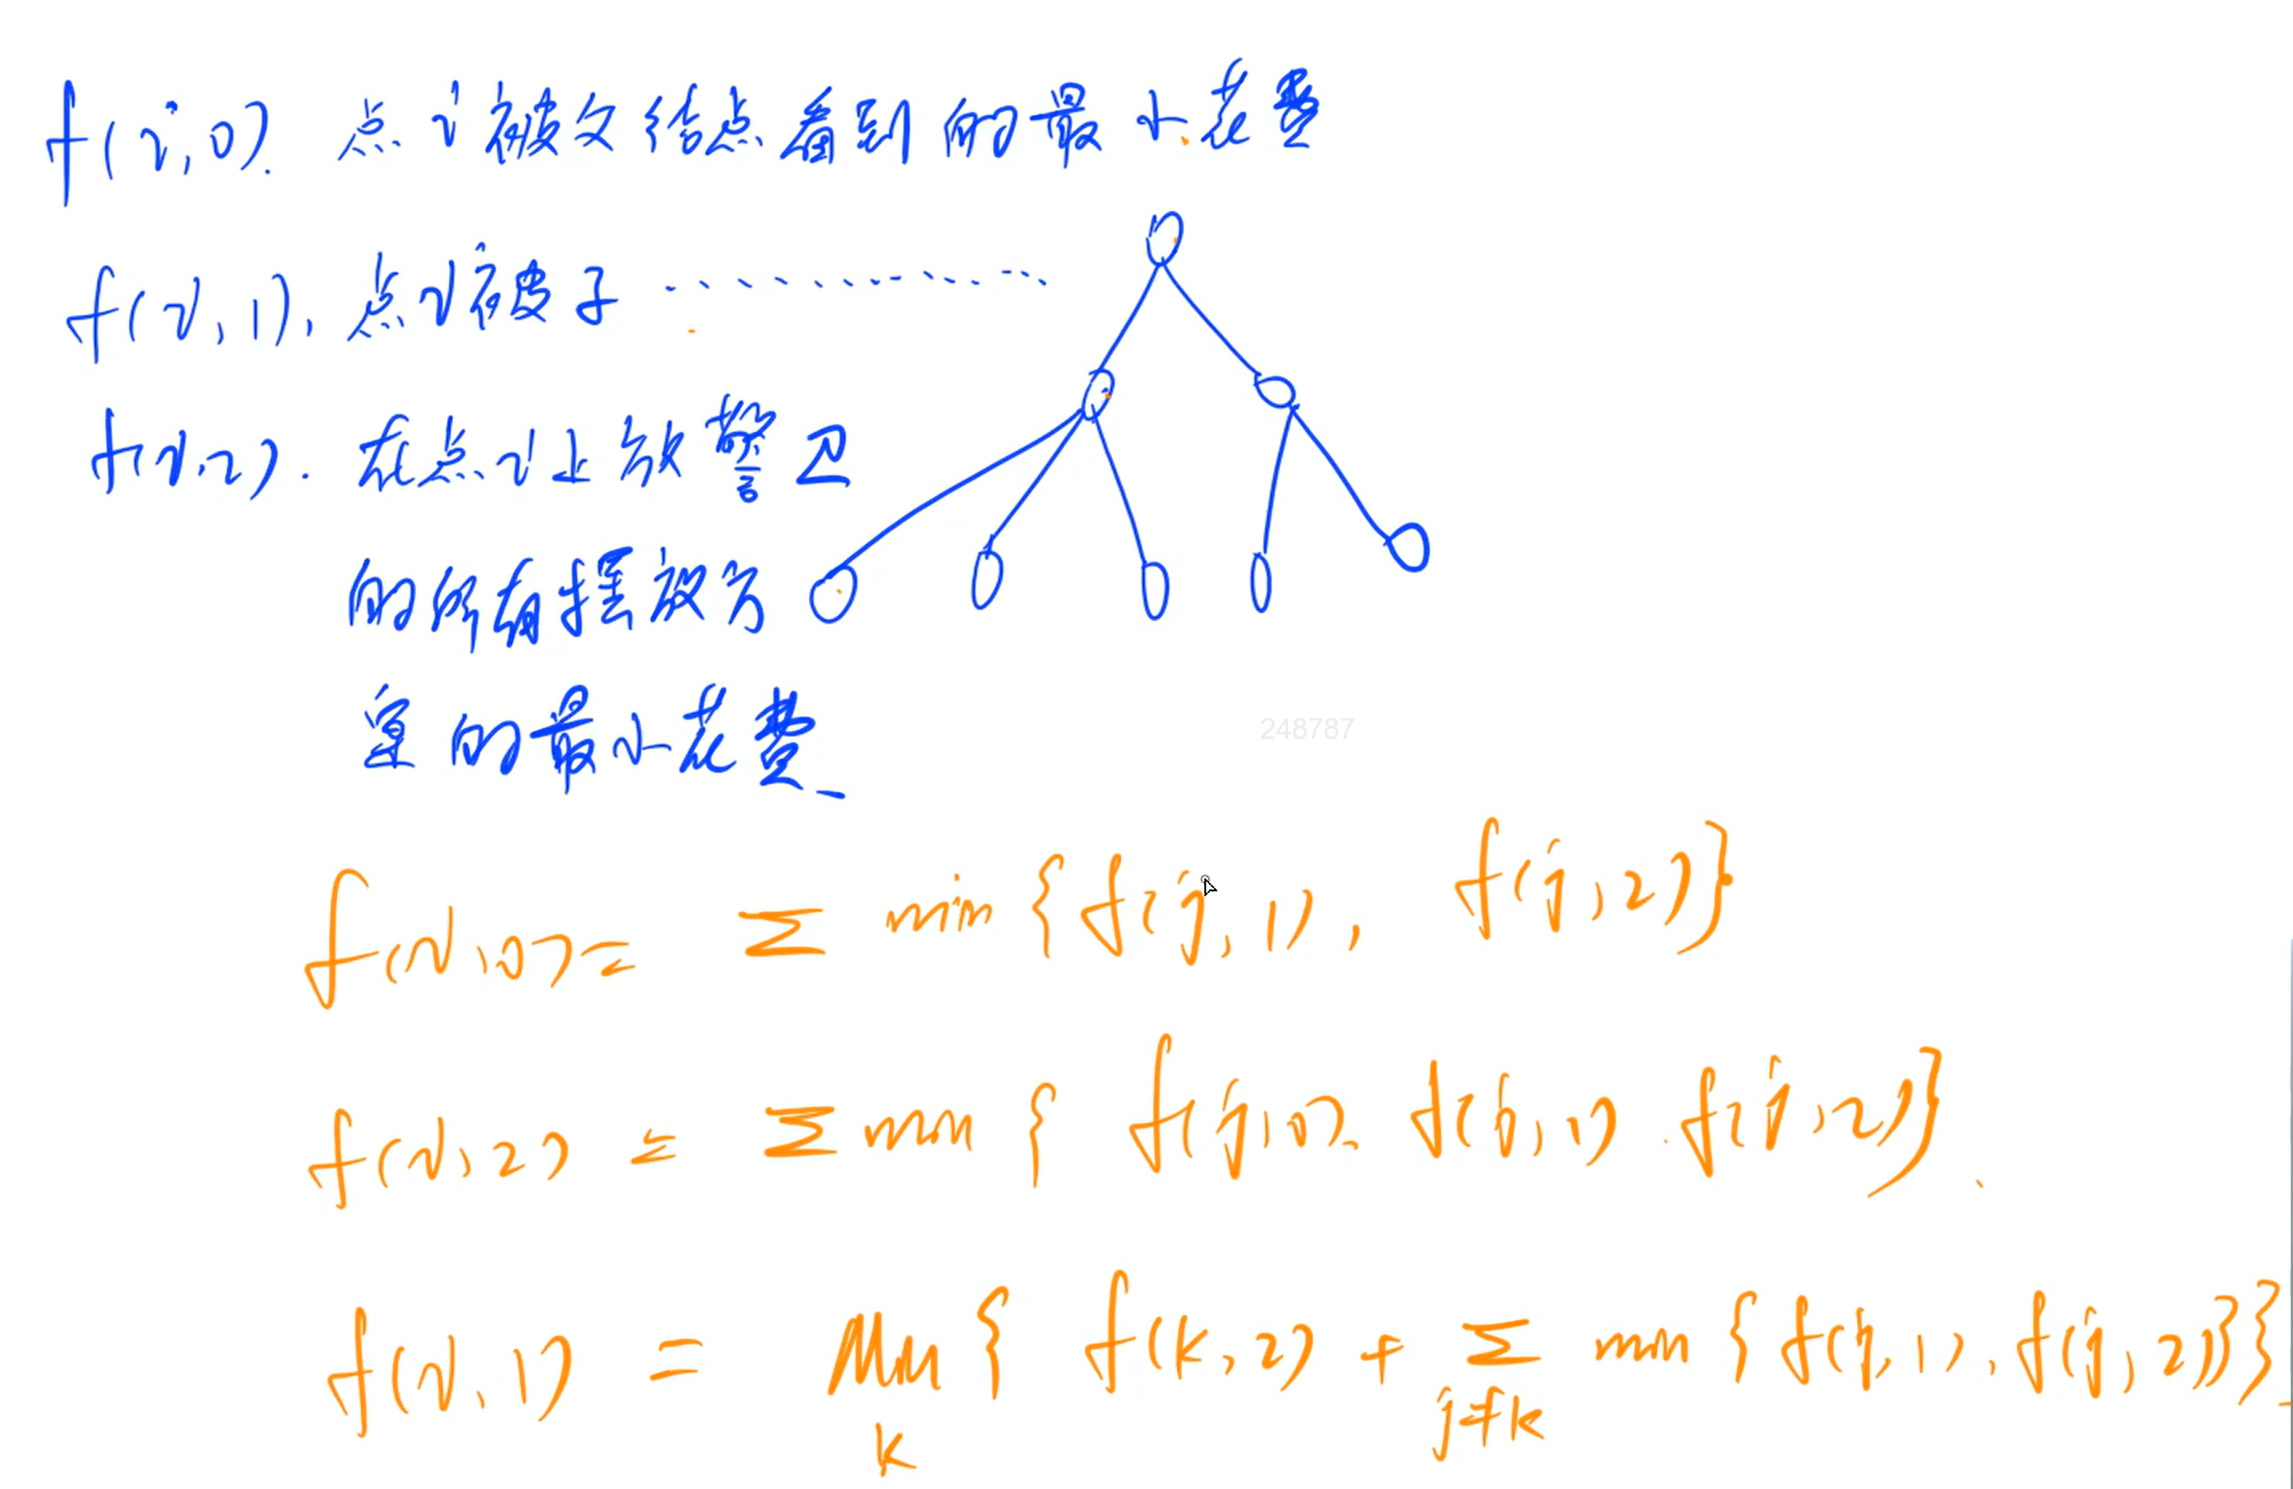 f(i,0). 点i被父结点看到的最小花费
f(i,1), 点i被子 ..............
f(i,2). 在点i上放警卫
的所有摆放方
案的最小花费
248787
f(i,0) = Σ min{f(j,1), f(j,2)}
f(i,2) = Σ min{ f(j,0), f(j,1). f(j,2)}.
f(i,1) = Min { f(k,2) + Σ min {f(j,1), f(j,2)}}
k j≠k